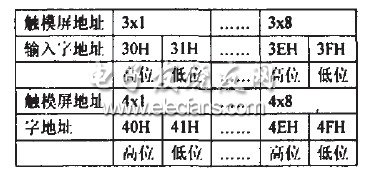 触摸屏地址 3x1 …… 3x8
输入字地址 30H 31H …… 3EH 3FH
高位 低位 …… 高位 低位
触摸屏地址 4x1 …… 4x8
字地址 40H 41H …… 4EH 4FH
高位 低位 …… 高位 低位
www.elecfans.com